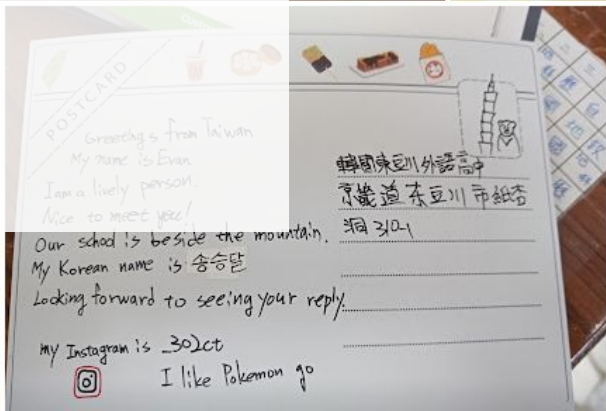 POSTCARD
Greetings from Taiwan
My name is Evan
I am a lively person.
Nice to meet you!
Our school is beside the mountain.
My Korean name is 송승달
Looking forward to seeing your reply.
my Instagram is _302ct
I like Pokemon go
韓國東豆川外語高中
京畿道東豆川市紙杏
洞 310-1